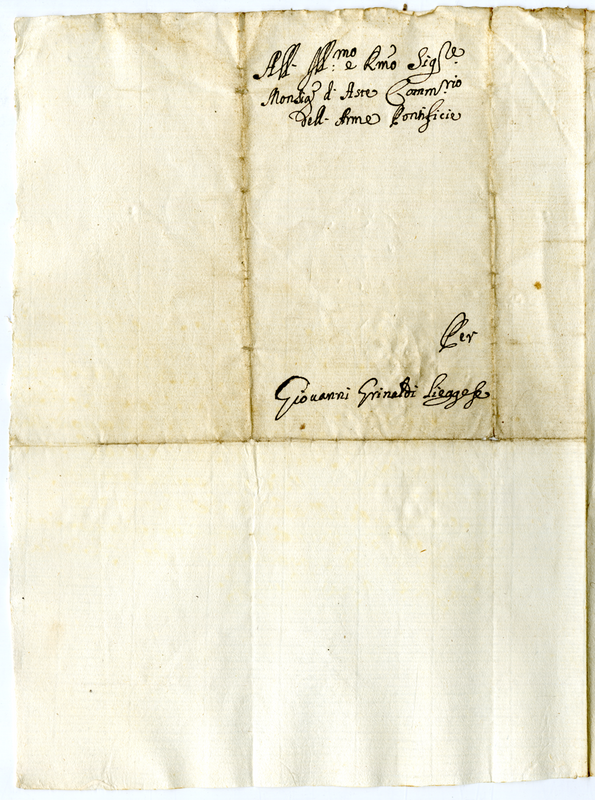 All- Ill:mo e Rmo Sigre.
Monsigr d- Aste Commrio
dell- Arme Pontificie
Per
Giovanni Grinaldi Lieggese